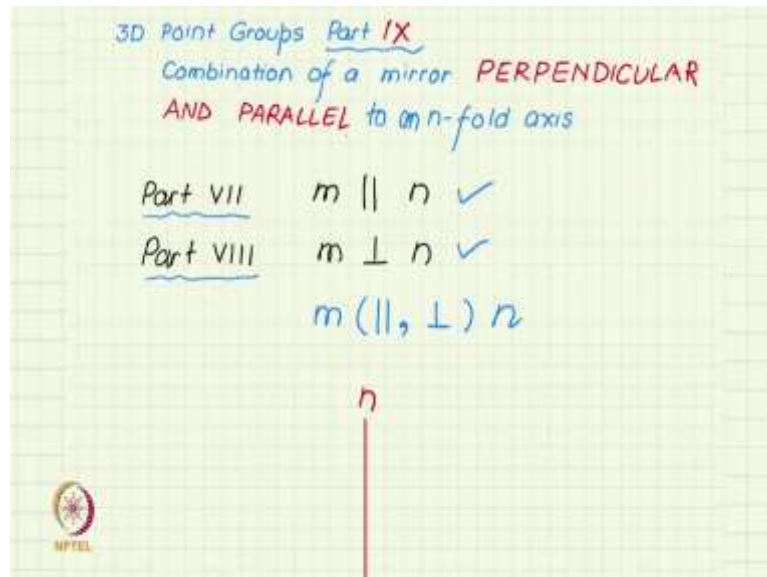 3D Point Groups Part IX
Combination of a mirror PERPENDICULAR
AND PARALLEL to an n-fold axis
Part VII m || n ✓
Part VIII m ⊥ n ✓
m (||, ⊥) n
n
NPTEL